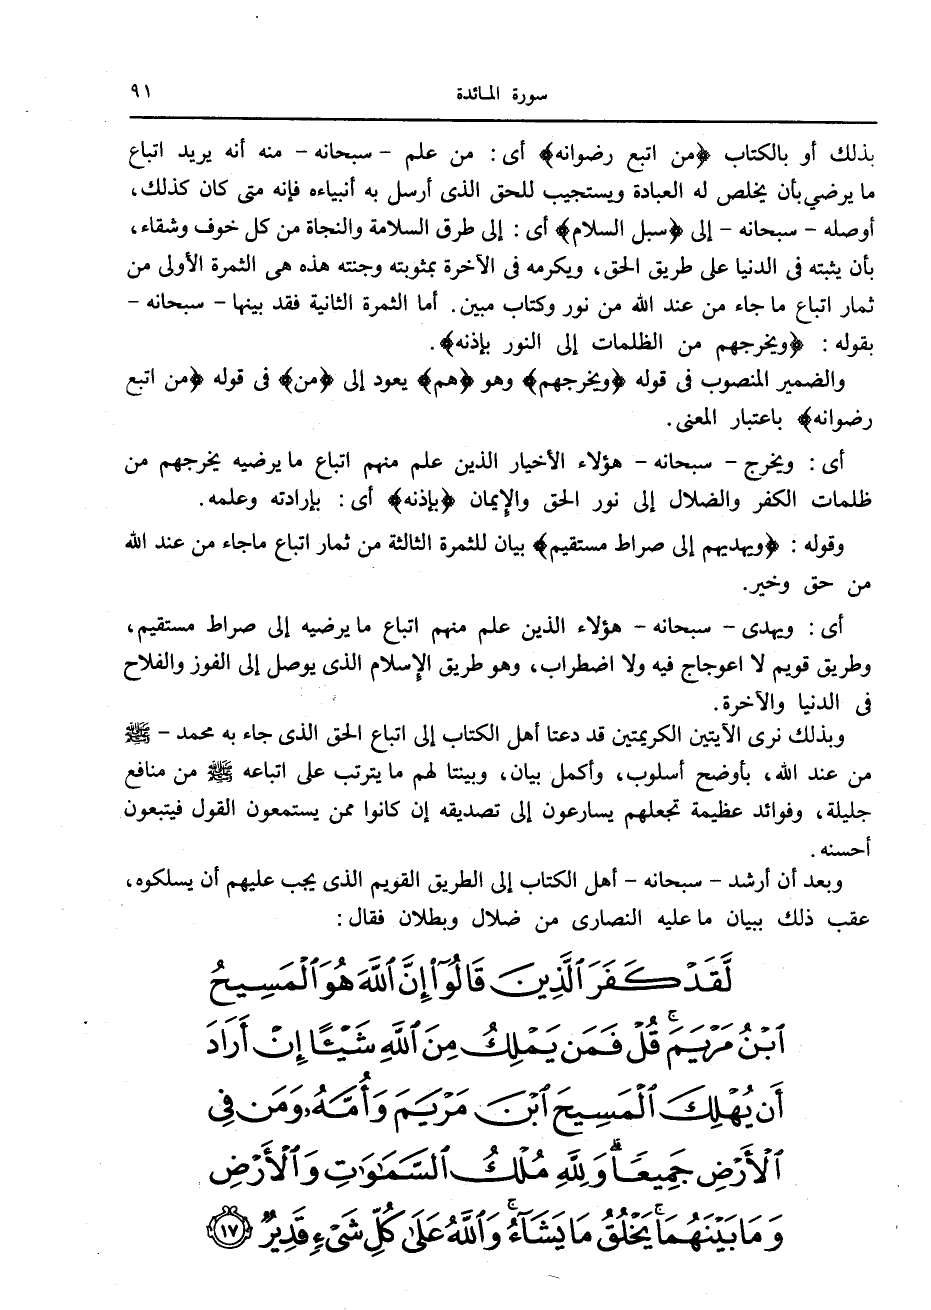 سورة المائدة ٩١
بذلك أو بالكتاب ﴿من اتبع رضوانه﴾ أى : من علم - سبحانه - منه أنه يريد اتباع
ما يرضي بأن يخلص له العبادة ويستجيب للحق الذى أرسل به أنبياءه فإنه متى كان كذلك،
أوصله - سبحانه - إلى ﴿سبل السلام﴾ أى : إلى طرق السلامة والنجاة من كل خوف وشقاء،
بأن يثبته فى الدنيا على طريق الحق، ويكرمه فى الآخرة بمثوبته وجنته هذه هى الثمرة الأولى من
ثمار اتباع ما جاء من عند الله من نور وكتاب مبين. أما الثمرة الثانية فقد بينها - سبحانه -
بقوله : ﴿ويخرجهم من الظلمات إلى النور بإذنه﴾.
والضمير المنصوب فى قوله ﴿ويخرجهم﴾ وهو ﴿هم﴾ يعود إلى ﴿من﴾ فى قوله ﴿من اتبع
رضوانه﴾ باعتبار المعنى.
أى : ويخرج - سبحانه - هؤلاء الأخيار الذين علم منهم اتباع ما يرضيه يخرجهم من
ظلمات الكفر والضلال إلى نور الحق والإيمان ﴿بإذنه﴾ أى : بإرادته وعلمه.
وقوله : ﴿ويهديهم إلى صراط مستقيم﴾ بيان للثمرة الثالثة من ثمار اتباع ماجاء من عند الله
من حق وخير.
أى : ويهدى - سبحانه - هؤلاء الذين علم منهم اتباع ما يرضيه إلى صراط مستقيم،
وطريق قويم لا اعوجاج فيه ولا اضطراب، وهو طريق الإسلام الذى يوصل إلى الفوز والفلاح
فى الدنيا والآخرة.
وبذلك نرى الآيتين الكريمتين قد دعتا أهل الكتاب إلى اتباع الحق الذى جاء به محمد - ﷺ
من عند الله، بأوضح أسلوب، وأكمل بيان، وبينتا لهم ما يترتب على اتباعه ﷺ من منافع
جليلة، وفوائد عظيمة تجعلهم يسارعون إلى تصديقه إن كانوا ممن يستمعون القول فيتبعون
أحسنه.
وبعد أن أرشد - سبحانه - أهل الكتاب إلى الطريق القويم الذى يجب عليهم أن يسلكوه،
عقب ذلك ببيان ما عليه النصارى من ضلال وبطلان فقال :
لَّقَدْ كَفَرَ ٱلَّذِينَ قَالُوٓا۟ إِنَّ ٱللَّهَ هُوَ ٱلْمَسِيحُ
ٱبْنُ مَرْيَمَ ۚ قُلْ فَمَن يَمْلِكُ مِنَ ٱللَّهِ شَيْـًٔا إِنْ أَرَادَ
أَن يُهْلِكَ ٱلْمَسِيحَ ٱبْنَ مَرْيَمَ وَأُمَّهُۥ وَمَن فِى
ٱلْأَرْضِ جَمِيعًا ۗ وَلِلَّهِ مُلْكُ ٱلسَّمَـٰوَٰتِ وَٱلْأَرْضِ
وَمَا بَيْنَهُمَا ۚ يَخْلُقُ مَا يَشَآءُ ۚ وَٱللَّهُ عَلَىٰ كُلِّ شَىْءٍ قَدِيرٌ ١٧